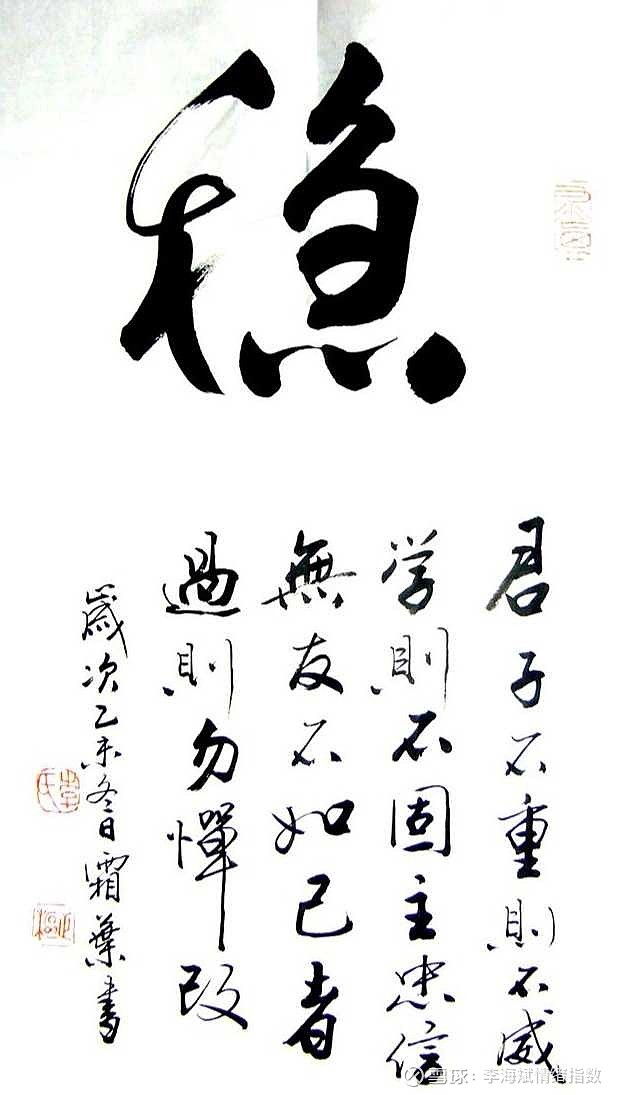 稳
君子不重則不威
学則不固主忠信
無友不如己者
過則勿憚改
歲次乙未冬日霜葉書
雪球：李海斌情绪指数